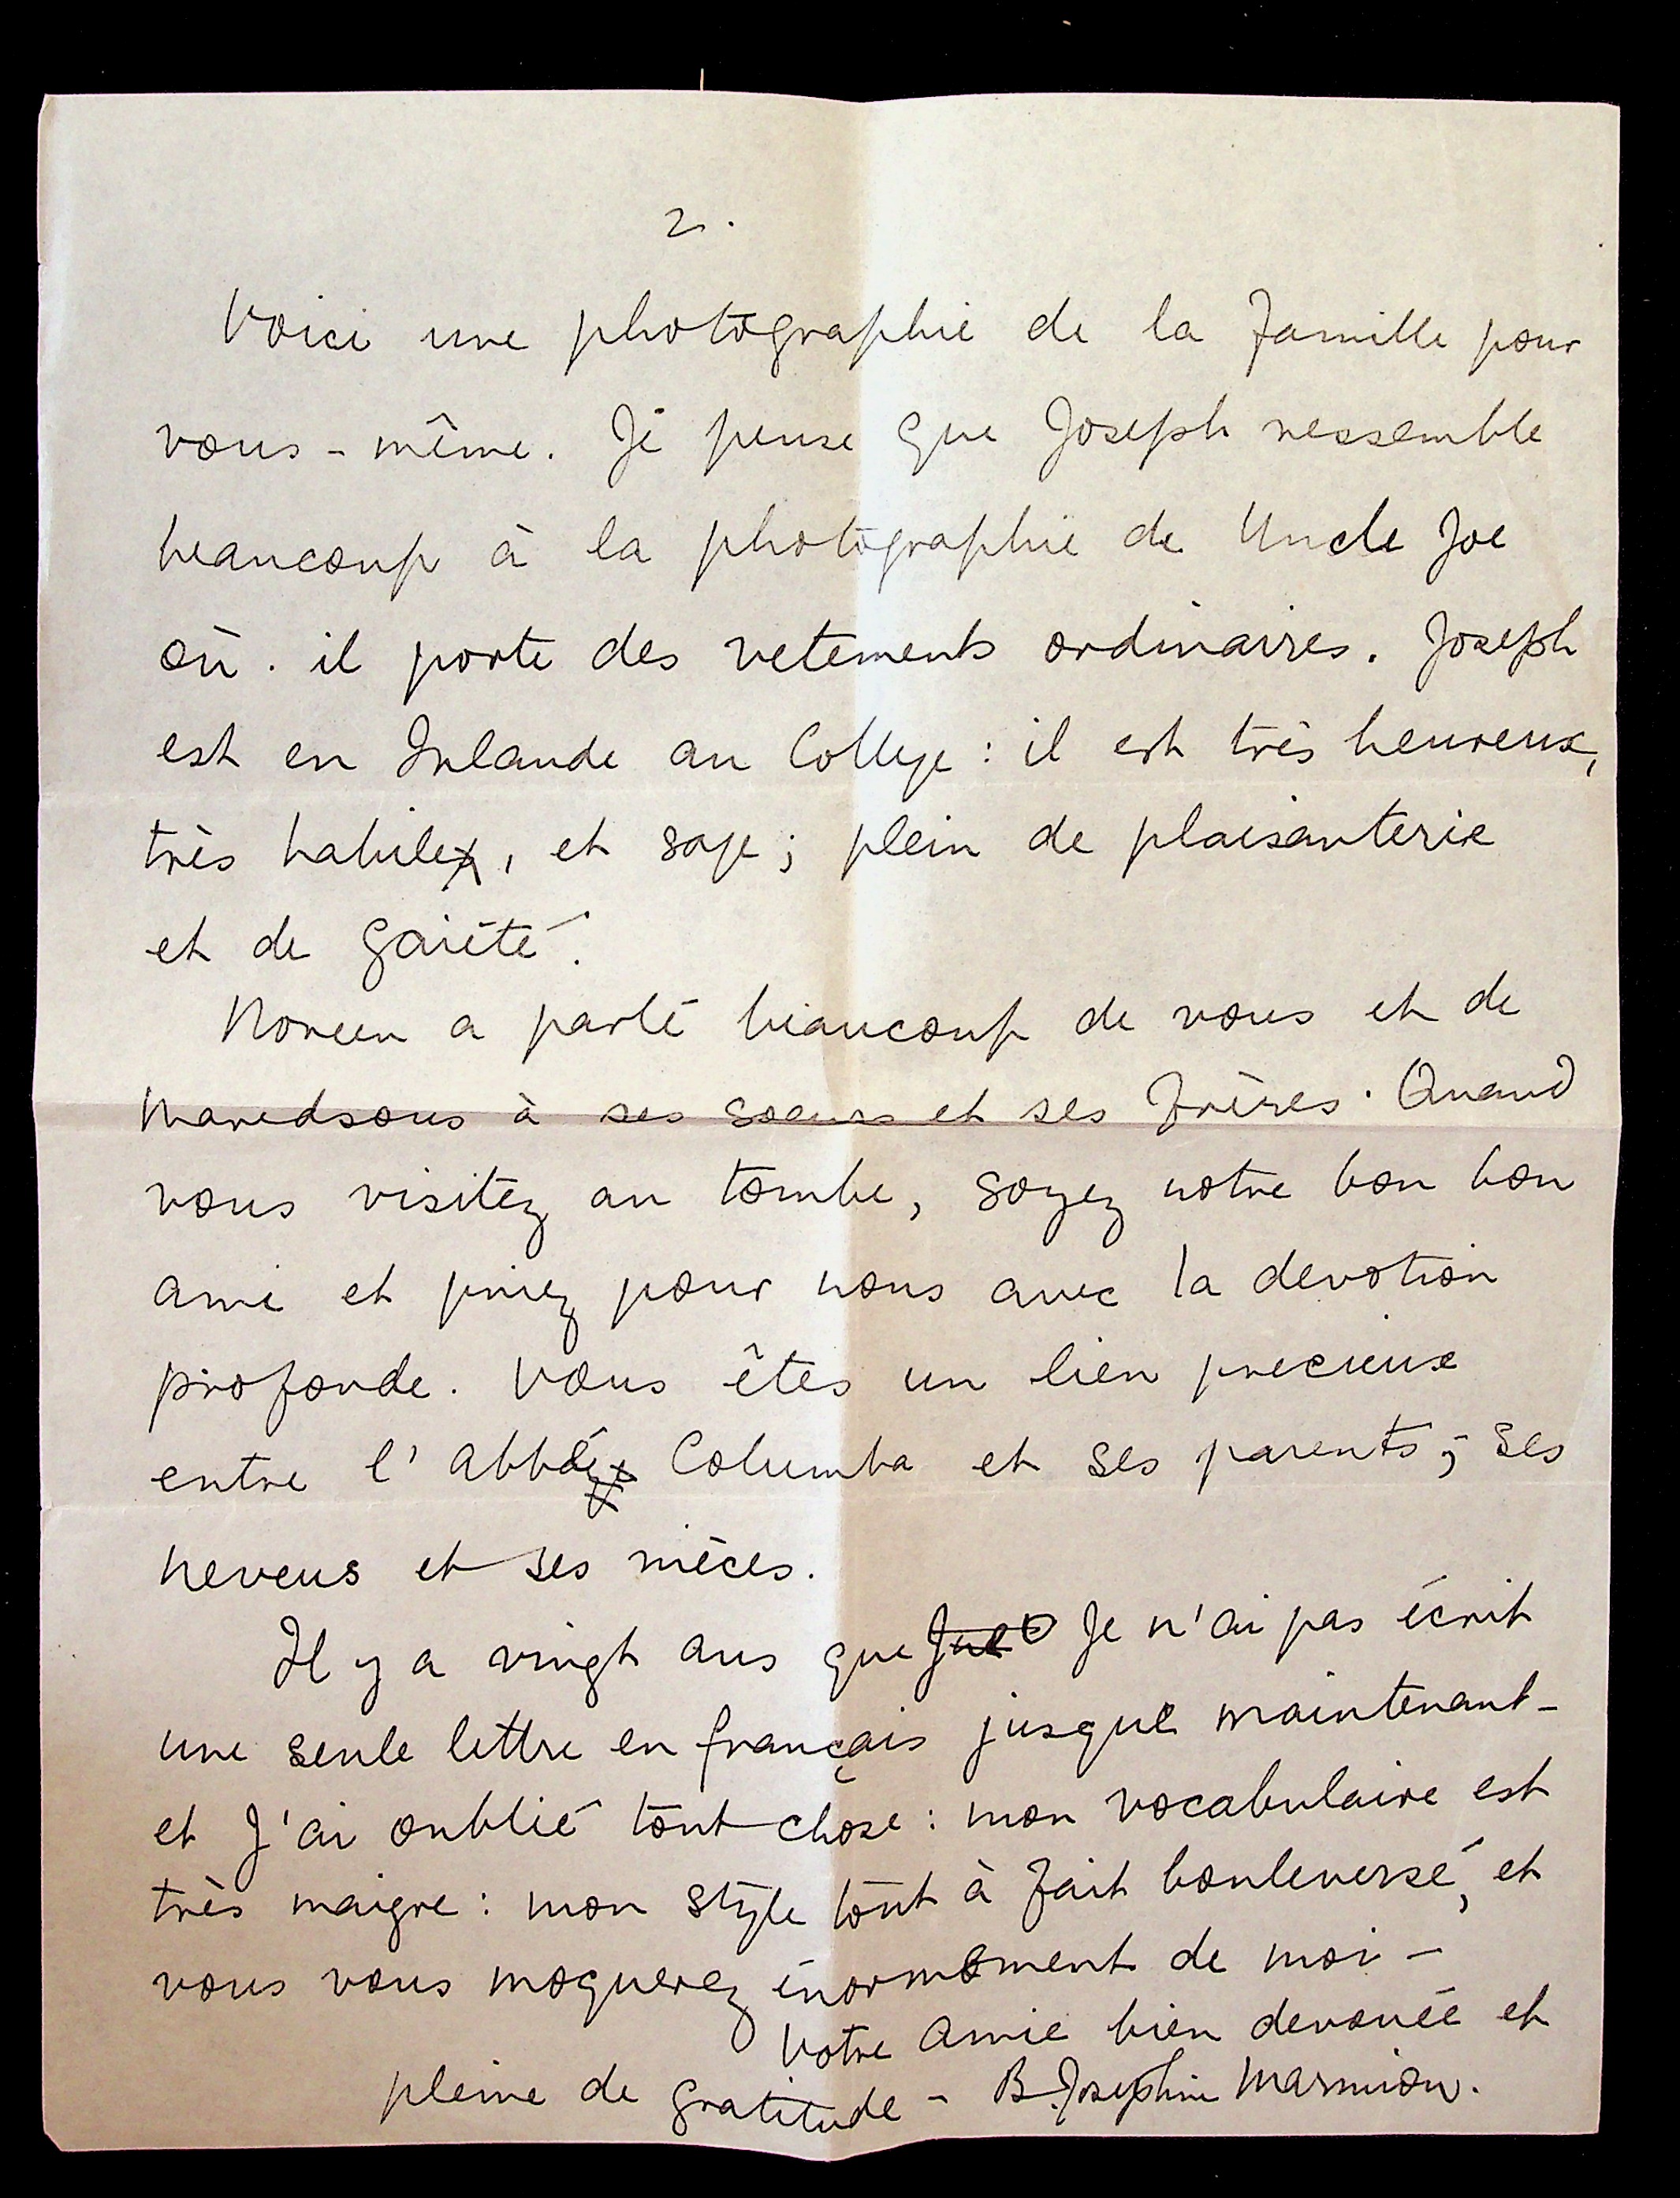 2.
Voici une photographie de la famille pour
vous-même. Je pense que Joseph ressemble
beaucoup à la photographie de Uncle Joe
où. il porte des vetements ordinaires. Joseph
est en Irlande au College: il est très heureux,
très habile, et sage; plein de plaisanterie
et de gaiété.
Noreen a parlé beaucoup de vous et de
Maredsous à ses soeurs et ses frères. Quand
vous visitez au tombe, soyez notre bon bon
ami et priez pour nous avec la devotion
profonde. Vous êtes un lien precieux
entre l'abbé Columba et ses parents; ses
neveus et ses nièces.
Il y a vingt ans que Je n'ai pas écrit
une seule lettre en français jusque maintenant-
et J'ai oublié tout chose: mon vocabulaire est
très maigre: mon style tout à fait bouleversé, et
vous vous moquerez énormement de moi -
Votre amie bien devouée et
pleine de gratitude - B. Josephine Marmion.